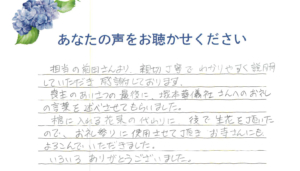 あなたの声をお聴かせください
担当の前田さんより、親切丁寧でわかりやすく説明
していただき感謝しております。
喪主のあいさつの最後に、坂本葬儀社さんへのお礼
の言葉を述べさせてもらいました。
棺に入れる花束の代わりに、後で生花を頂いた
ので、お礼参りに使用させて頂き お寺さんにも
よろこんでいただきました。
いろいろありがとうございました。